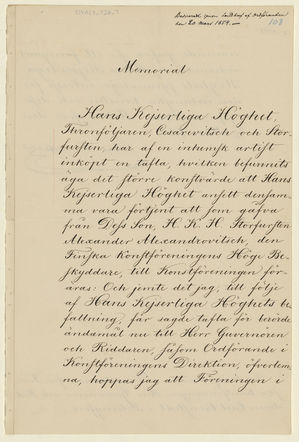 den 20 Mars 1859.
108
Memorial
Hans Kejserliga Höghet,
Thronföljaren, Cesarevitsch och Stor-
fursten, har af en inhemsk artist
inköpt en tafla, hvilken befunnits
äga det större konstvärde att Hans
Kejserliga Höghet ansett densam-
ma vara förtjent att som gåfva
från Dess Son, H. K. H. Storfursten
Alexander Alexandrovitsch, den
Finska Konstföreningens Höge Be-
skyddare, till Konstföreningen för-
äras: Och jemte det jag, till följe
af Hans Kejserliga Höghets be-
fallning, får sagde tafla för berörde
ändamål nu till Herr Guvernören
och Riddaren, såsom Ordförande i
Konstföreningens Direktion, öfverlem-
na, hoppas jag att Föreningen i